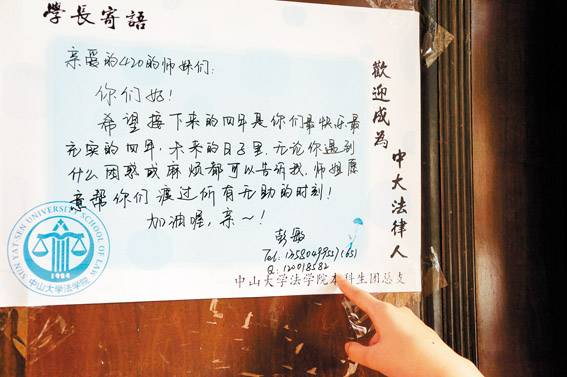 學長寄語
亲爱的420的师妹们:
你们好!
希望接下来的四年是你们最快乐最
充实的四年,未来的日子里,无论你遇到
什么困惑或麻烦都可以告诉我,师姐愿
意帮你们渡过所有无助的时刻!
加油喔,亲~!
彭敏
Tel:
Q: 120018582
中山大学法学院本科生团总支
歡迎成為
中大法律人
SUN YAT-SEN UNIVERSITY SCHOOL OF LAW
1924
中山大学法学院